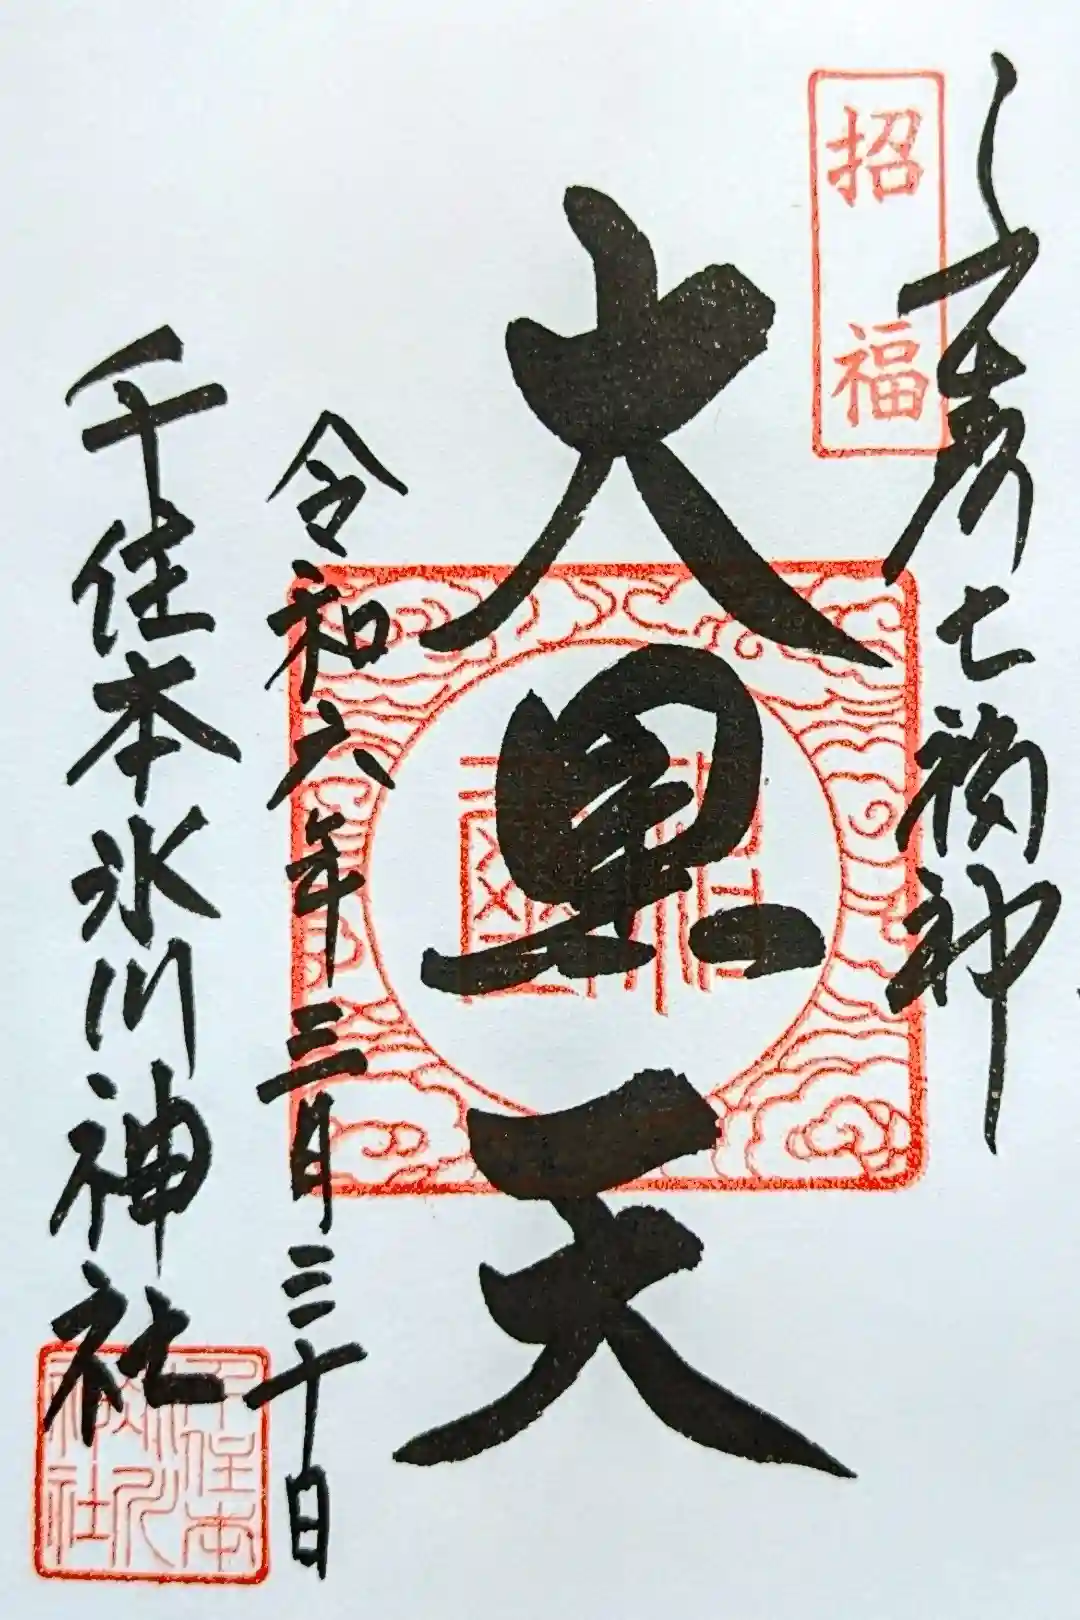 千寿七福神
招福
大黒天
令和六年三月三十日
千住本氷川神社
千住本氷川神社